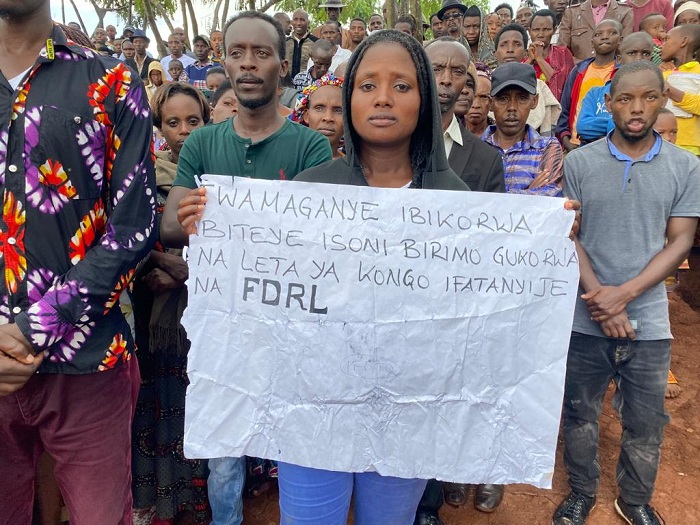 TWAMAGANYE IBIKORWA
BITEYE ISONI BIRIMO GUKORWA
NA LETA YA KONGO IFATANYIJE
NA FDRL